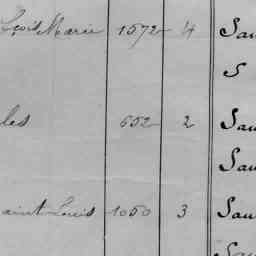 Marie 1572 4 Sau
S
les 652 2 Sau
Sau
aint Louis 1050 3 Sau
Sau